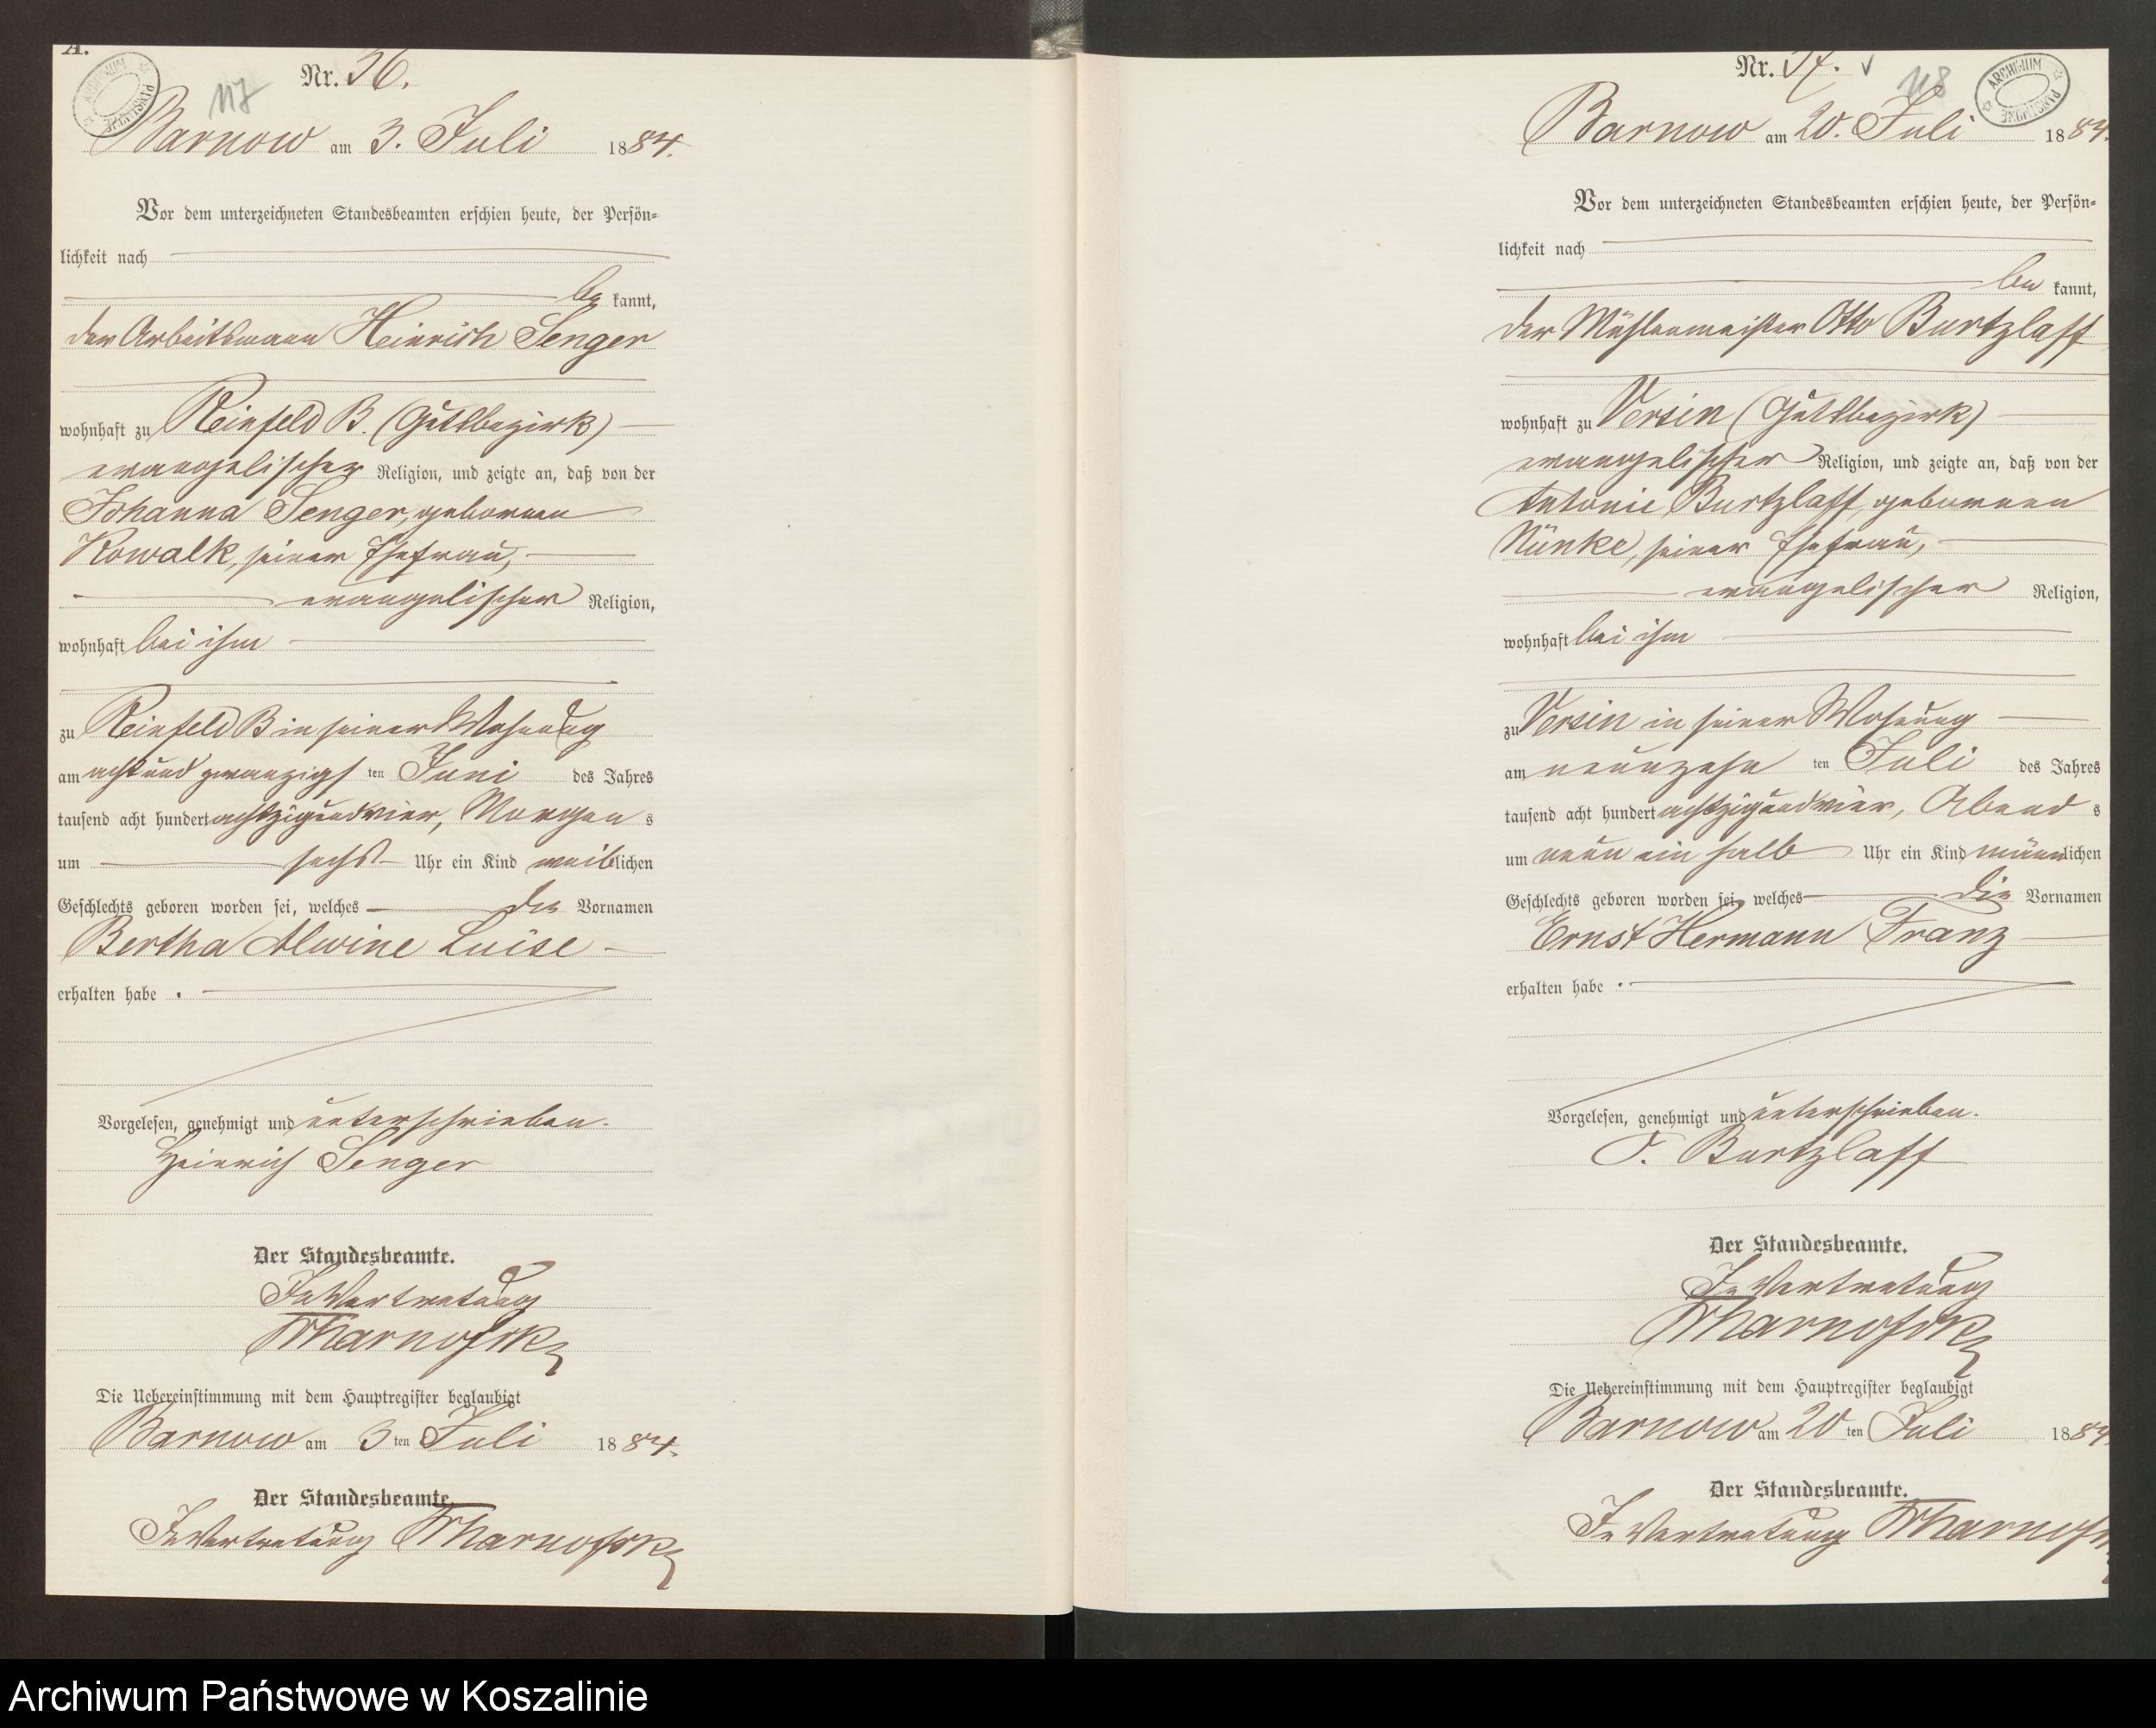 A.
117
ARCHIWUM PAŃSTWOWE
Nr. 36.
Barnow am 3. Juli 1884.
Vor dem unterzeichneten Standesbeamten erschien heute, der Persön=
lichkeit nach
be kannt,
der Arbeitsmann Heinrich Senger
wohnhaft zu Reinfeld B. (Gutsbezirk)
evangelischer Religion, und zeigte an, daß von der
Johanna Senger, geborenen
Kowalk, seiner Ehefrau,
evangelischer Religion,
wohnhaft bei ihm
zu Reinfeld B in seiner Wohnung
am acht und zwanzigs ten Juni des Jahres
tausend acht hundert achtzigundvier, Morgen s
um sechs Uhr ein Kind weiblichen
Geschlechts geboren worden sei, welches die Vornamen
Bertha Alwine Luise
erhalten habe .
Vorgelesen, genehmigt und unterschrieben.
Heinrich Senger
Der Standesbeamte.
In Vertretung
Die Uebereinstimmung mit dem Hauptregister beglaubigt
Barnow am 3 ten Juli 1884.
Der Standesbeamte.
In Vertretung
Nr. 37. 118
ARCHIWUM PAŃSTWOWE
Barnow am 20. Juli 1884.
Vor dem unterzeichneten Standesbeamten erschien heute, der Persön=
lichkeit nach
be kannt,
der Mühlenmeister Otto Burtzlaff
wohnhaft zu Versin (Gutsbezirk)
evangelischer Religion, und zeigte an, daß von der
Antonie Burtzlaff, geborenen
Nünke, seiner Ehefrau,
evangelischer Religion,
wohnhaft bei ihm
zu Versin in seiner Wohnung
am neunzehn ten Juli des Jahres
tausend acht hundert achtzigundvier, Abend s
um neun ein halb Uhr ein Kind männlichen
Geschlechts geboren worden sei, welches die Vornamen
Ernst Hermann Franz
erhalten habe .
Vorgelesen, genehmigt und unterschrieben.
O. Burtzlaff
Der Standesbeamte.
In Vertretung
Die Uebereinstimmung mit dem Hauptregister beglaubigt
Barnow am 20 ten Juli 1884
Der Standesbeamte.
In Vertretung
Archiwum Państwowe w Koszalinie